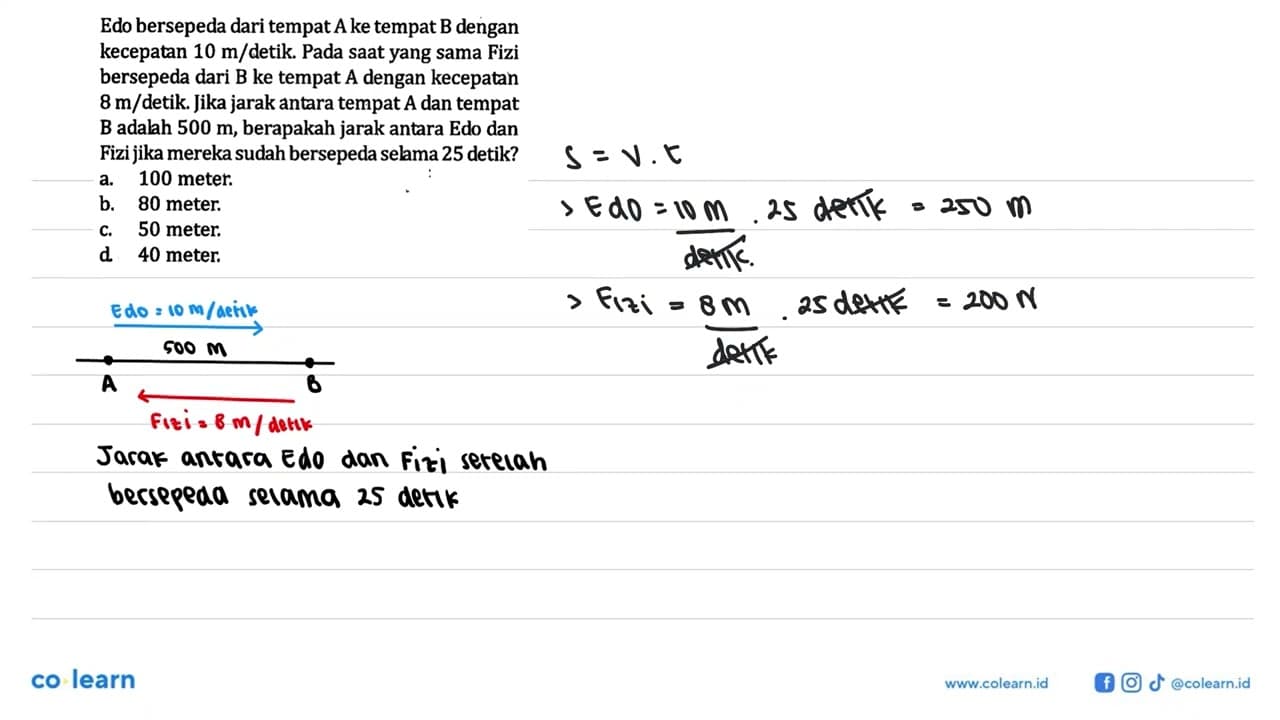 Edo bersepeda dari tempat A ke tempat B dengan
kecepatan 10 m/detik. Pada saat yang sama Fizi
bersepeda dari B ke tempat A dengan kecepatan
8 m/detik. Jika jarak antara tempat A dan tempat
B adalah 500 m, berapakah jarak antara Edo dan
Fizi jika mereka sudah bersepeda selama 25 detik?
a. 100 meter.
b. 80 meter.
c. 50 meter.
d. 40 meter.
Edo = 10 m/detik
500 m
A B
Fizi = 8 m/detik
Jarak antara Edo dan Fizi setelah
bersepeda selama 25 detik
s = v . t
> Edo = 10 m . 25 detik = 250 m
detik.
> Fizi = 8 m . 25 detik = 200 N
detik
co learn
www.colearn.id
@colearn.id